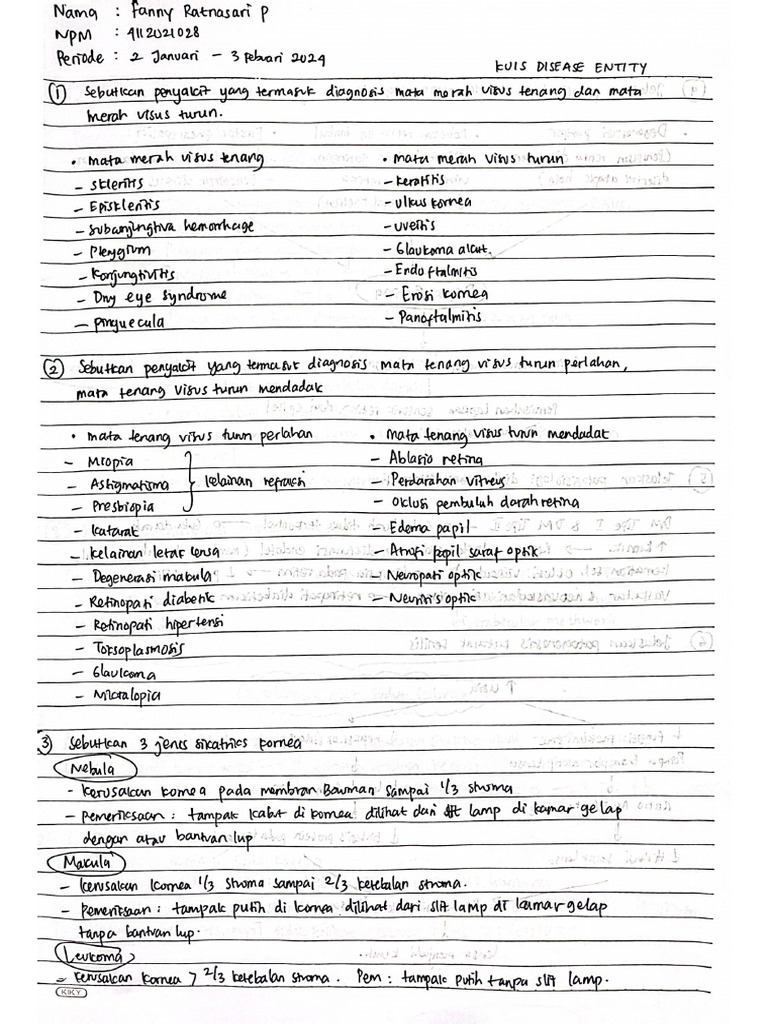 Nama : Fanny Ratnasari P
NPM : 4112021028
Periode : 2 Januari - 3 Febuari 2024
KUIS DISEASE ENTITY
① Sebutkan penyakit yang termasuk diagnosis mata merah visus tenang dan mata
merah visus turun.
• mata merah visus tenang
- Skleritis
- Episkleritis
- Subkonjungtiva hemorrhage
- Pterygium
- Konjungtivitis
- Dry eye syndrome
- pinguecula
• mata merah visus turun
- keratitis
- ulkus kornea
- uveitis
- Glaukoma akut.
- Endoftalmitis
- Erosi kornea
- Panoftalmitis
② Sebutkan penyakit yang termasuk diagnosis mata tenang visus turun perlahan,
mata tenang visus turun mendadak
• mata tenang visus turun perlahan
- Miopia
- Astigmatisma } kelainan refraksi
- Presbiopia
- katarak
- kelainan letak lensa
- Degenerasi makula
- Retinopati diabetik
- Retinopati hipertensi
- Toksoplasmosis
- Glaukoma
- Mikralopia
• mata tenang visus turun mendadak
- Ablasio retina
- Perdarahan vitreus
- oklusi pembuluh darah retina
- Edema papil
- Atrofi papil saraf optik
- Neuropati optik
- Neuritis optik
③ Sebutkan 3 jenis sikatriks kornea
Nebula
- kerusakan kornea pada membran Bauman sampai 1/3 stroma
- Pemeriksaan : tampak kabut di kornea dilihat dari slit lamp di kamar gelap
dengan atau bantuan lup
Makula
- kerusakan kornea 1/3 stroma sampai 2/3 ketebalan stroma.
- Pemeriksaan : tampak putih di kornea dilihat dari slit lamp di kamar gelap
tanpa bantuan lup.
Leukoma
- kerusakan kornea > 2/3 ketebalan stroma. Pem : tampak putih tanpa slit lamp.
KIKY